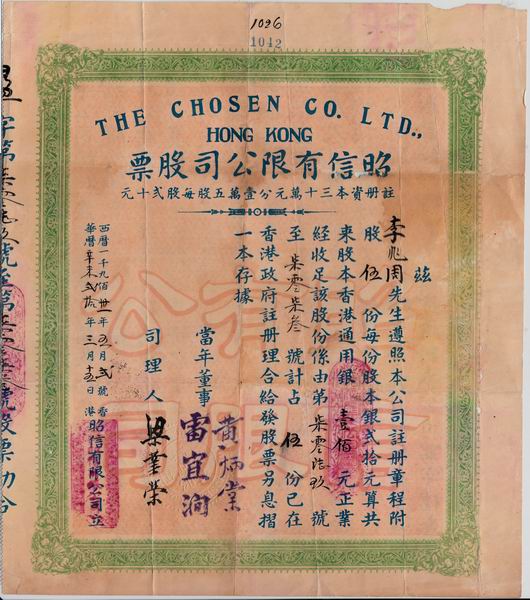 1042
THE CHOSEN CO. LTD.,
HONG KONG
昭信有限公司股票
註册資本三十萬元分壹萬五股每股弍十元
茲
李兆周先生遵照本公司註册章程附
股伍份每份股本銀弍拾元算共
來股本香港通用銀壹佰元正業
經收足該股份係由第柒零陸玖號
至柒零柒叁號計占伍份已在
香港政府註册理合給發股票另息摺
一本存據
當年董事 黃炳棠 雷宜洞
司理人 梁業榮
西曆一千九佰卅一年五月弍號香
華曆辛未弍拾年三月十五日港
昭信有限公司立
字第 號至第 號股票